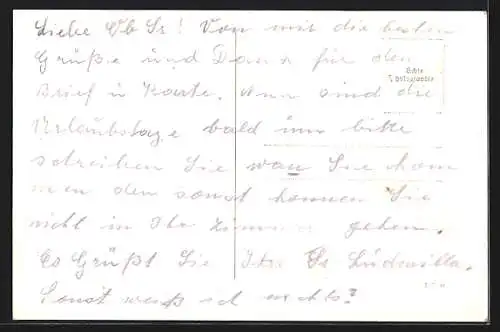 Liebe Ob Sr! Von mir die besten
Grüße und Dank für den
Echte
Photographie
Brief u Karte. Nun sind die
Urlaubstage bald um bitte
schreiben Sie wan Sie kom
men den sonst konnen Sie
nicht in Ihr Zimmer gehen.
Es Grüßt Sie Ihre Sr Ludwilla.
Sonst weiß ich nichts?